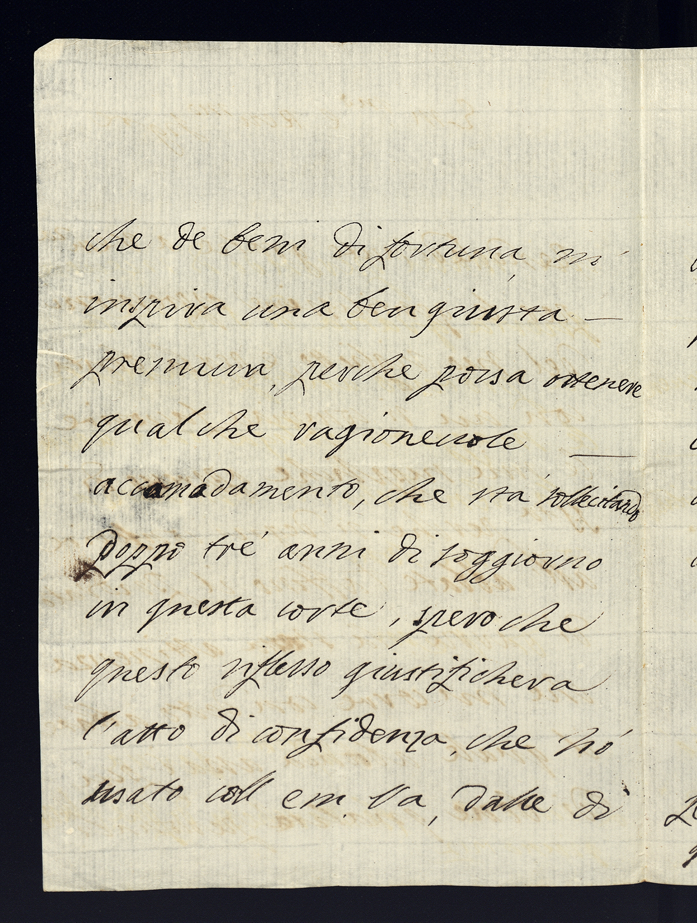 che de beni di fortuna, mi
inspira una ben giusta —
premura, perche possa ottenere
qualche ragionevole —
accomodamento, che stà sollecitando
doppo tré anni di soggiorno
in questa corte, spero che
questo riflesso giustifichera
l'atto di confidenza, che hó
usato coll em. Va, dalle di